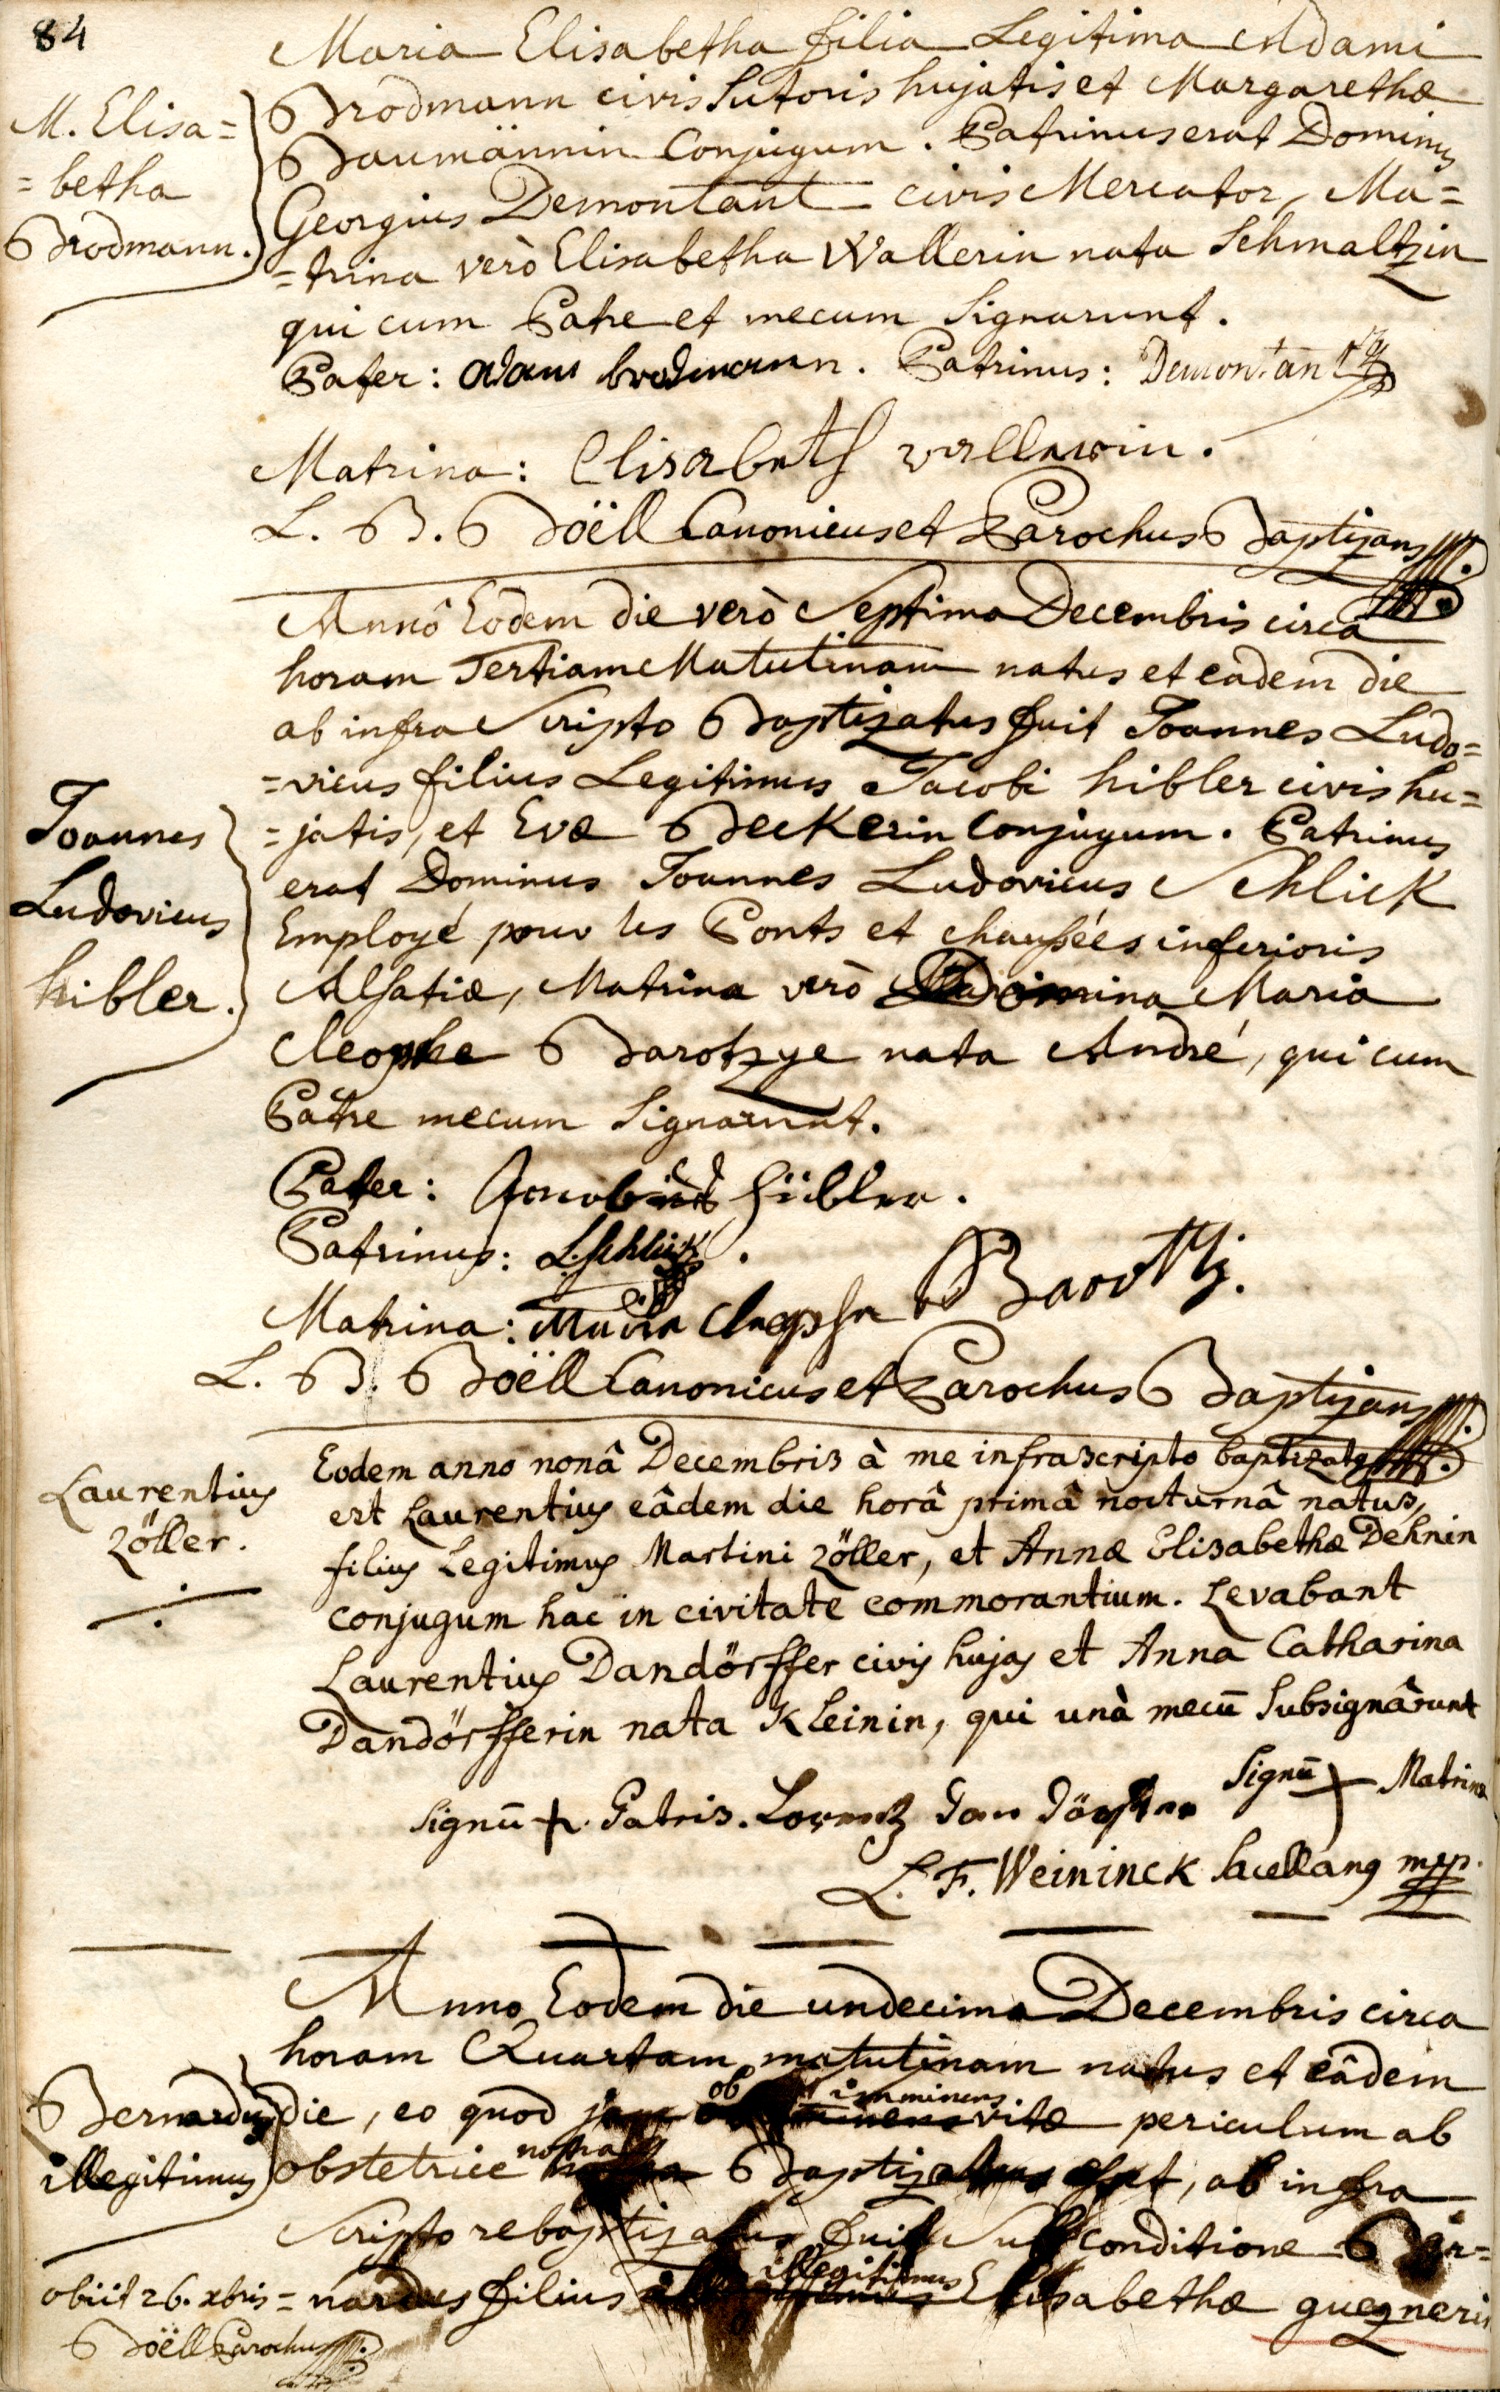 84
Maria Elisabetha filia Legitima Adami
Brodmann civis Sutoris hujatis et Margarethæ
Baumännin Conjugum. Patrinus erat Dominus
Georgius Demontant civis Mercator, Ma=
=trina verò Elisabetha Wallerin nata Schmaltzin
qui cum Patre et mecum Signarunt.
M. Elisa=
=betha
Brodmann.
Pater: adam brodmann. Patrinus: Demontant
Matrina: Elisabeth wallerin.
L. B. Böëll Canonicus et Parochus Baptizans
Annô Eodem die verò Septima Decembris circa
horam Tertiam Matutinam natus et eadem die
ab infra Scripto Baptizatus fuit Joannes Ludo=
=vicus filius Legitimus Jacobi hibler civis hu=
=jatis, et Evæ Beckerin Conjugum. Patrinus
erat Dominus Joannes Ludovicus Schlick
Employé pour les Ponts et chaussées inferioris
Alsatiæ, Matrina verò Domina Maria
Cleophe Barotzye nata André, qui cum
Patre mecum Signarunt.
Joannes
Ludovicus
hibler.
Pater: Jacob hübler.
Patrinus: L. Schlick.
Matrina: Maria Cleophe Barottzi.
L. B. Böëll Canonicus et Parochus Baptizans
Eodem anno nonâ Decembris à me infrascripto baptizatus
est Laurentius eâdem die horâ primâ nocturnâ natus,
filius Legitimus Martini Zöller, et Annæ Elisabethæ Dehnin
conjugum hac in civitate commorantium. Levabant
Laurentius Dandörffer civis hujas et Anna Catharina
Dandörfferin nata Kleinin, qui unà mecū Subsignârunt
Laurentius
Zöller.
Signū + Patris. Lorentz dan dörffer Signū + Matrina
L. F. Weininck Sacellanus mpp.
Anno Eodem die undecima Decembris circa
horam Quartam matutinam natus et eâdem
die, eo quod ob imminens vitæ periculum ab
obstetrice nostra Baptizatus esset, ab infra
Scripto rebaptizatus fuit Sub conditione Ber=
=nardus filius illegitimus Elisabethæ guegnerin
Bernardus
illegitimus
obiit 26. xbris
Böëll Parochus